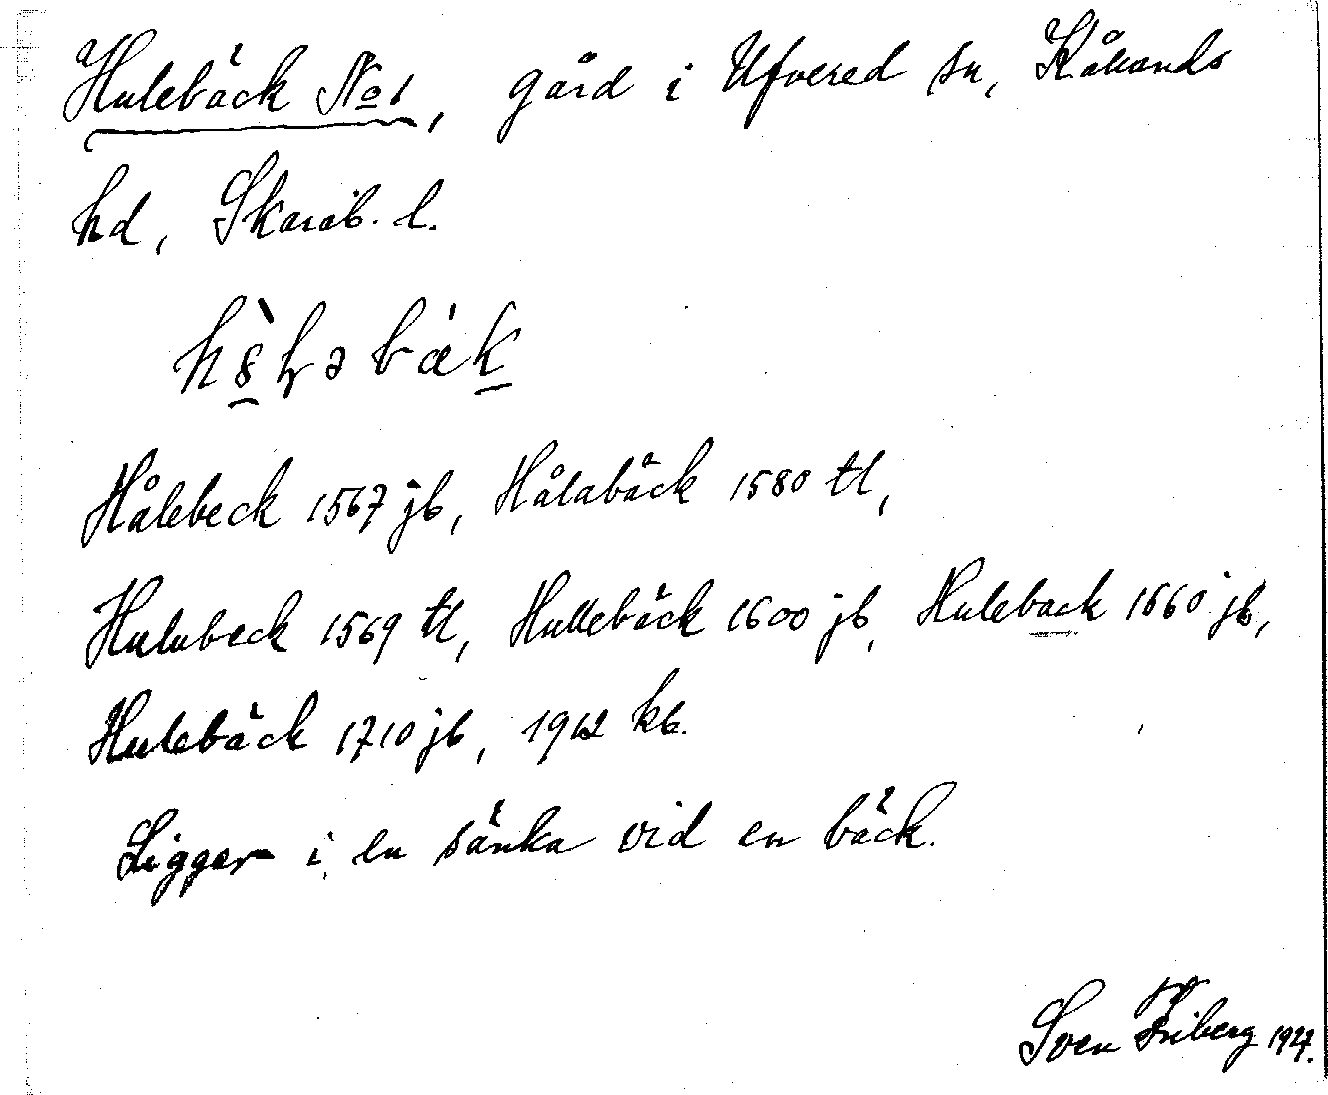 Hulebäck No 1, gård i Ufvered sn, Kåkands
hd, Skarab. l.
Hålebeck 1567 jb, Hålabäck 1580 tl,
Hulubeck 1569 tl, Hullebäck 1600 jb, Huleback 1660 jb,
Hulebäck 1710 jb, 1912 kb.
Ligger i en sänka vid en bäck.
Sven Friberg 1927.